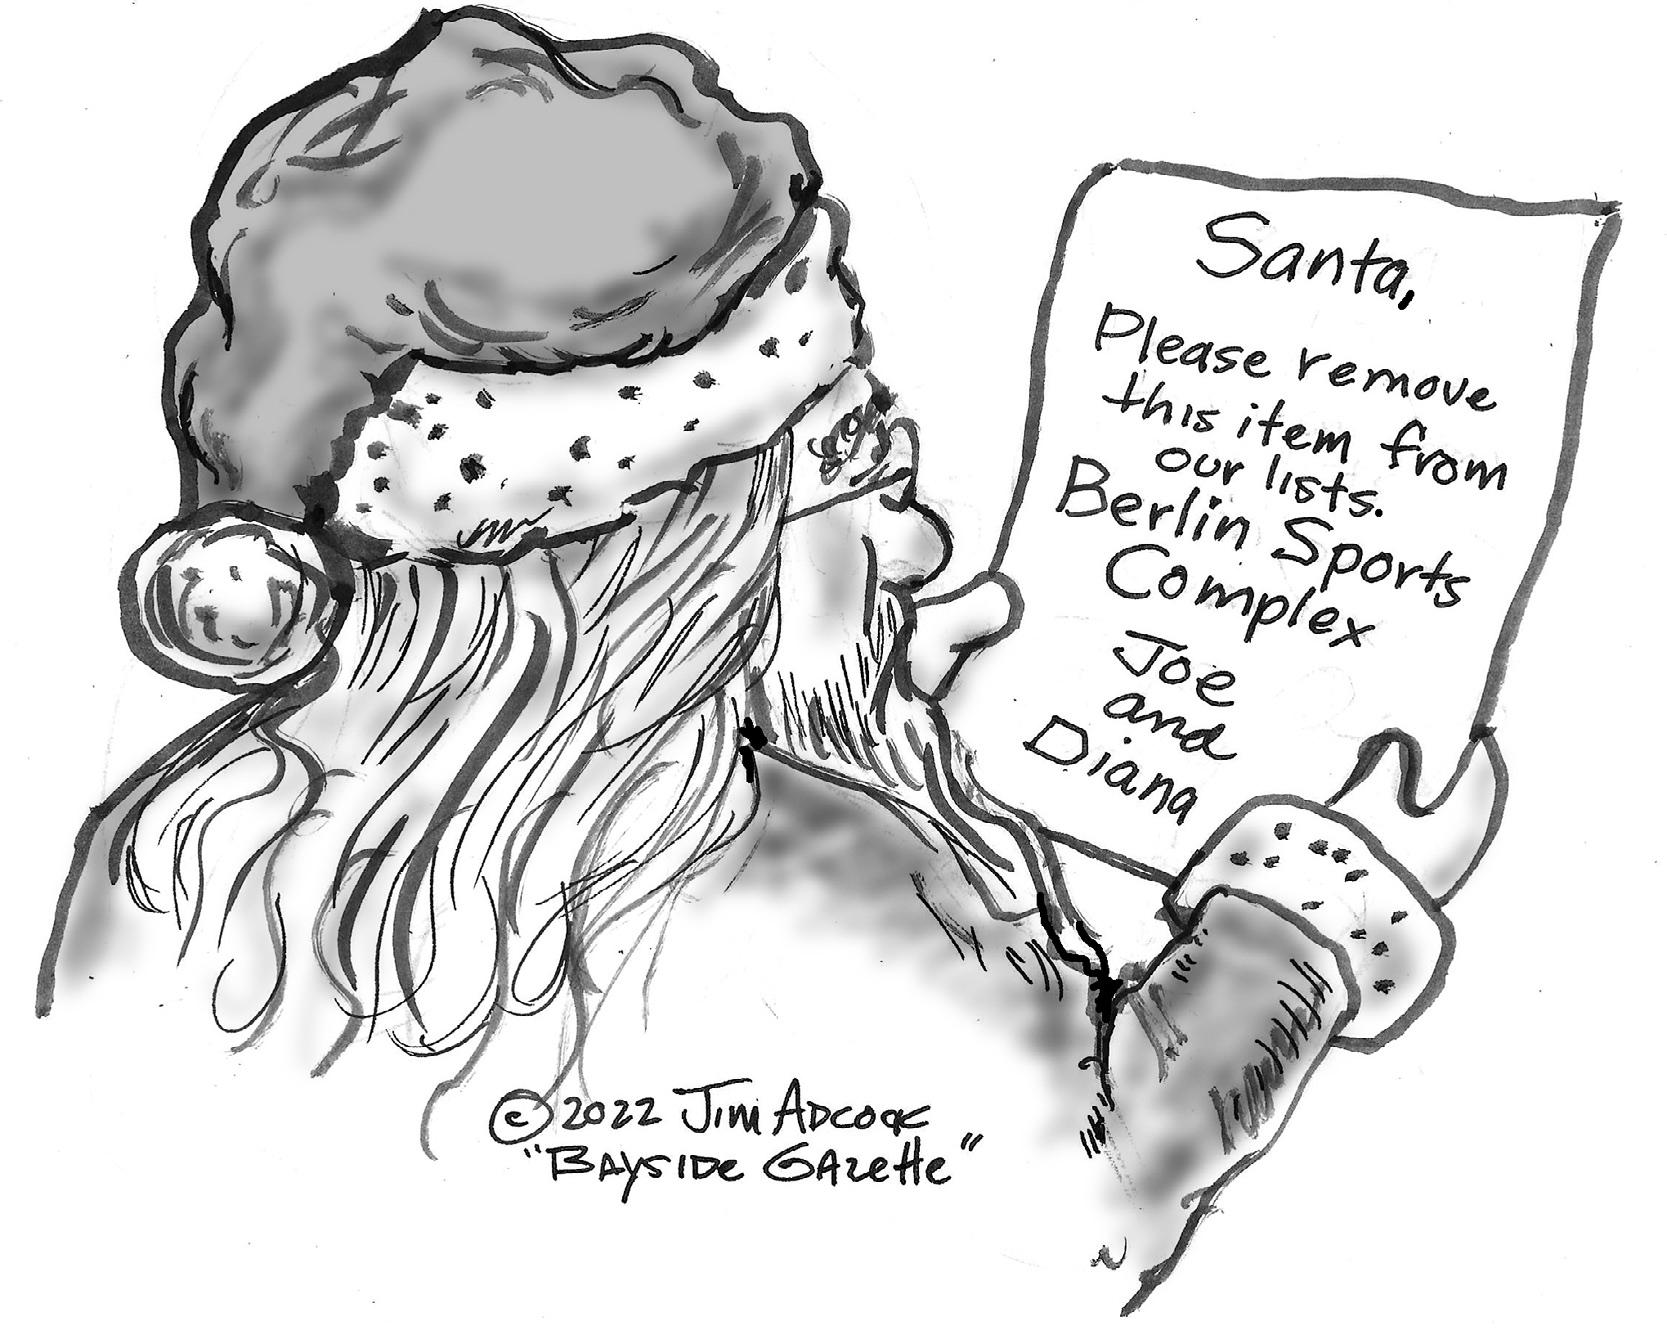 Santa,
Please remove
this item from
our lists.
Berlin Sports
Complex
Joe
and
Diana
© 2022 Jim Adcock
"Bayside Gazette"